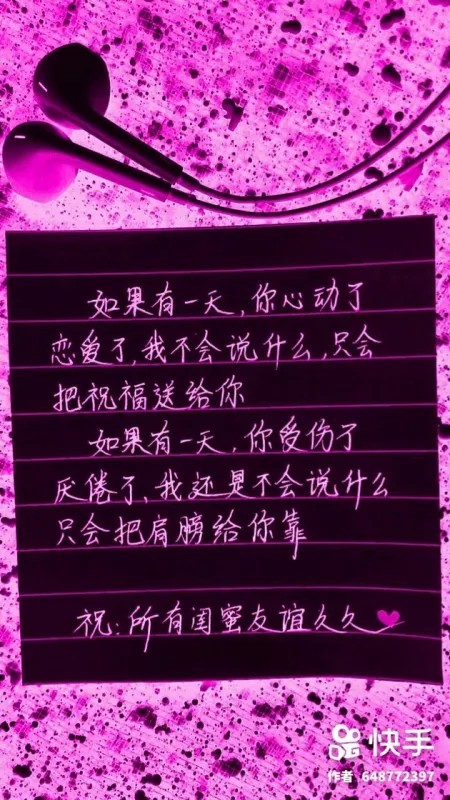 如果有一天,你心动了
恋爱了,我不会说什么,只会
把祝福送给你
如果有一天,你受伤了
厌倦了、我还是不会说什么
只会把肩膀给你靠
祝:所有闺蜜友谊久久
快手
作者 648772397